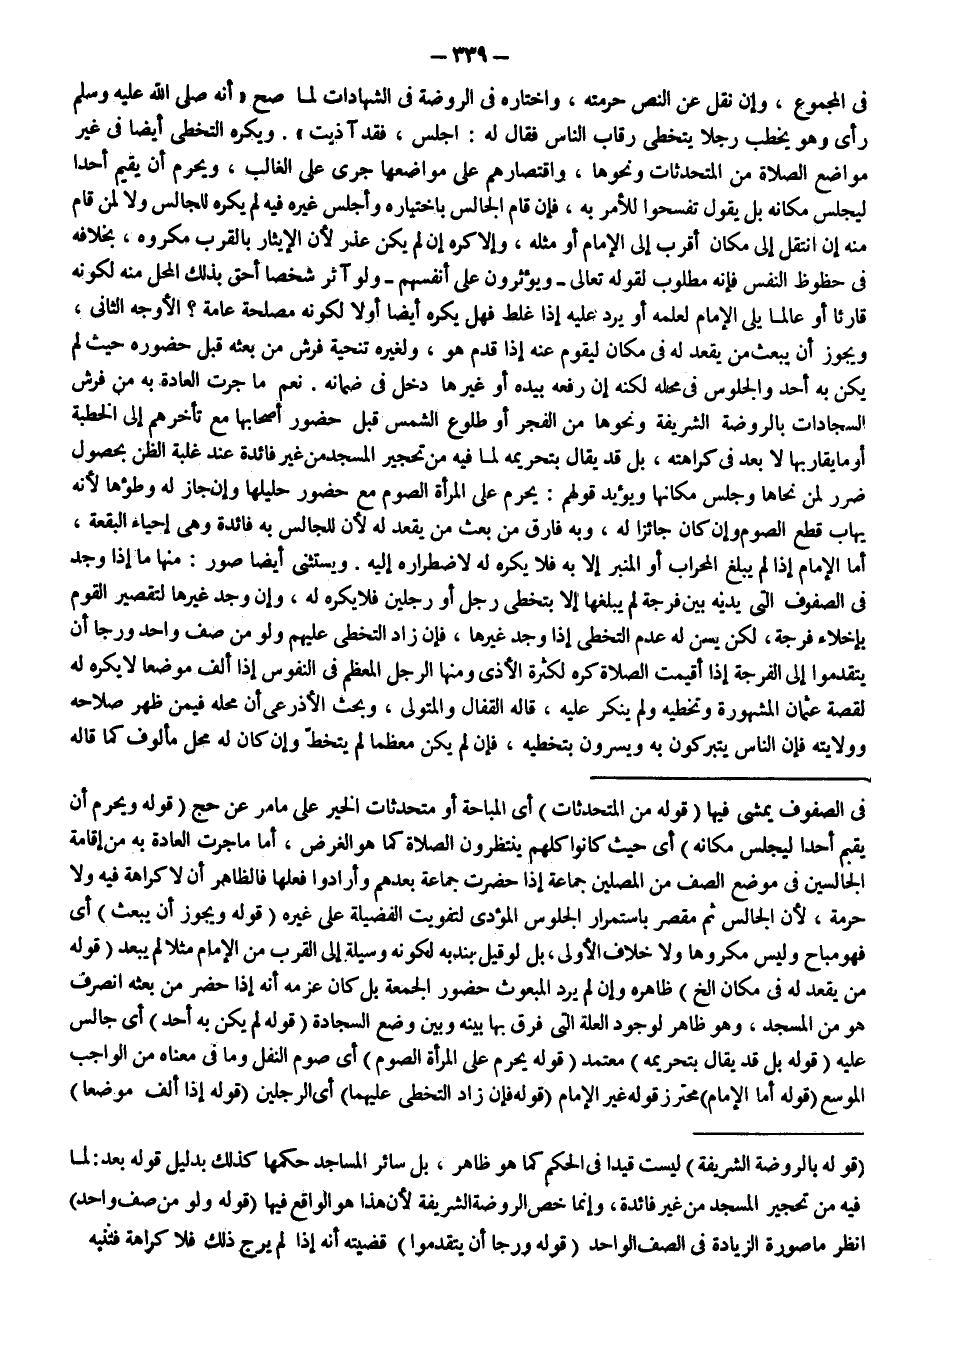 – ٣٣٩ –
فى المجموع ، وإن نقل عن النص حرمته ، واختاره فى الروضة فى الشهادات لما صح « أنه صلى الله عليه وسلم
رأى وهو يخطب رجلا يتخطى رقاب الناس فقال له : اجلس ، فقد آذيت » . ويكره التخطى أيضا فى غير
مواضع الصلاة من المتحدثات ونحوها ، واقتصارهم على مواضعها جرى على الغالب ، ويحرم أن يقيم أحدا
ليجلس مكانه بل يقول تفسحوا للأمر به ، فإن قام الجالس باختياره وأجلس غيره فيه لم يكره للجالس ولا لمن قام
منه إن انتقل إلى مكان أقرب إلى الإمام أو مثله ، وإلا كره إن لم يكن عذر لأن الإيثار بالقرب مكروه ، بخلافه
فى حظوظ النفس فإنه مطلوب لقوله تعالى ـ ويؤثرون على أنفسهم ـ ولو آثر شخصا أحق بذلك المحل منه لكونه
قارئا أو عالما يلى الإمام لعلمه أو يرد عليه إذا غلط فهل يكره أيضا أولا لكونه مصلحة عامة ؟ الأوجه الثانى ،
ويجوز أن يبعث من يقعد له فى مكان ليقوم عنه إذا قدم هو ، ولغيره تنحية فرش من بعثه قبل حضوره حيث لم
يكن به أحد والجلوس فى محله لكنه إن رفعه بيده أو غيرها دخل فى ضمانه . نعم ما جرت العادة به من فرش
السجادات بالروضة الشريفة ونحوها من الفجر أو طلوع الشمس قبل حضور أصحابها مع تأخرهم إلى الخطبة
أو ما يقاربها لا بعد فى كراهته ، بل قد يقال بتحريمه لما فيه من تحجير المسجد من غير فائدة عند غلبة الظن بحصول
ضرر لمن نحاها وجلس مكانها ويؤيد قولهم : يحرم على المرأة الصوم مع حضور حليلها وإن جاز له وطؤها لأنه
يهاب قطع الصوم وإن كان جائزا له ، وبه فارق من بعث من يقعد له لأن للجالس به فائدة وهى إحياء البقعة ،
أما الإمام إذا لم يبلغ المحراب أو المنبر إلا به فلا يكره له لاضطراره إليه . ويستثنى أيضا صور : منها ما إذا وجد
فى الصفوف التى يدنيه بين فرجة لم يبلغها إلا بتخطى رجل أو رجلين فلا يكره له ، وإن وجد غيرها لتقصير القوم
بإخلاء فرجة ، لكن يسن له عدم التخطى إذا وجد غيرها ، فإن زاد التخطى عليهم ولو من صف واحد ورجا أن
يتقدموا إلى الفرجة إذا أقيمت الصلاة كره لكثرة الأذى ومنها الرجل المعظم فى النفوس إذا ألف موضعا لا يكره له
لقصة عثمان المشهورة وتخطيه ولم ينكر عليه ، قاله القفال والمتولى ، وبحث الأذرعى أن محله فيمن ظهر صلاحه
وولايته فإن الناس يتبركون به ويسرون بتخطيه ، فإن لم يكن معظما لم يتخطّ وإن كان له محل مألوف كما قاله
فى الصفوف يمشى فيها ( قوله من المتحدثات ) أى المباحة أو متحدثات الخير على مامر عن حج ( قوله ويحرم أن
يقيم أحدا ليجلس مكانه ) أى حيث كانوا كلهم ينتظرون الصلاة كما هو الغرض ، أما ماجرت العادة به من إقامة
الجالسين فى موضع الصف من المصلين جماعة إذا حضرت جماعة بعدهم وأرادوا فعلها فالظاهر أن لا كراهة فيه ولا
حرمة ، لأن الجالس ثم مقصر باستمرار الجلوس المؤدى لتفويت الفضيلة على غيره ( قوله ويجوز أن يبعث ) أى
فهو مباح وليس مكروها ولا خلاف الأولى ، بل لو قيل بندبه لكونه وسيلة إلى القرب من الإمام مثلا لم يبعد ( قوله
من يقعد له فى مكان الخ ) ظاهره وإن لم يرد المبعوث حضور الجمعة بل كان عزمه أنه إذا حضر من بعثه انصرف
هو من المسجد ، وهو ظاهر لوجود العلة التى فرق بها بينه وبين وضع السجادة ( قوله لم يكن به أحد ) أى جالس
عليه ( قوله بل قد يقال بتحريمه ) معتمد ( قوله يحرم على المرأة الصوم ) أى صوم النفل وما فى معناه من الواجب
الموسع ( قوله أما الإمام ) محترز قوله غير الإمام ( قوله فإن زاد التخطى عليهما ) أى الرجلين ( قوله إذا ألف موضعا )
( قوله بالروضة الشريفة ) ليست قيدا فى الحكم كما هو ظاهر ، بل سائر المساجد حكمها كذلك بدليل قوله بعد : لما
فيه من تحجير المسجد من غير فائدة ، وإنما خص الروضة الشريفة لأن هذا هو الواقع فيها ( قوله ولو من صف واحد )
انظر ماصورة الزيادة فى الصف الواحد ( قوله ورجا أن يتقدموا ) قضيته أنه إذا لم يرج ذلك فلا كراهة فتنبه